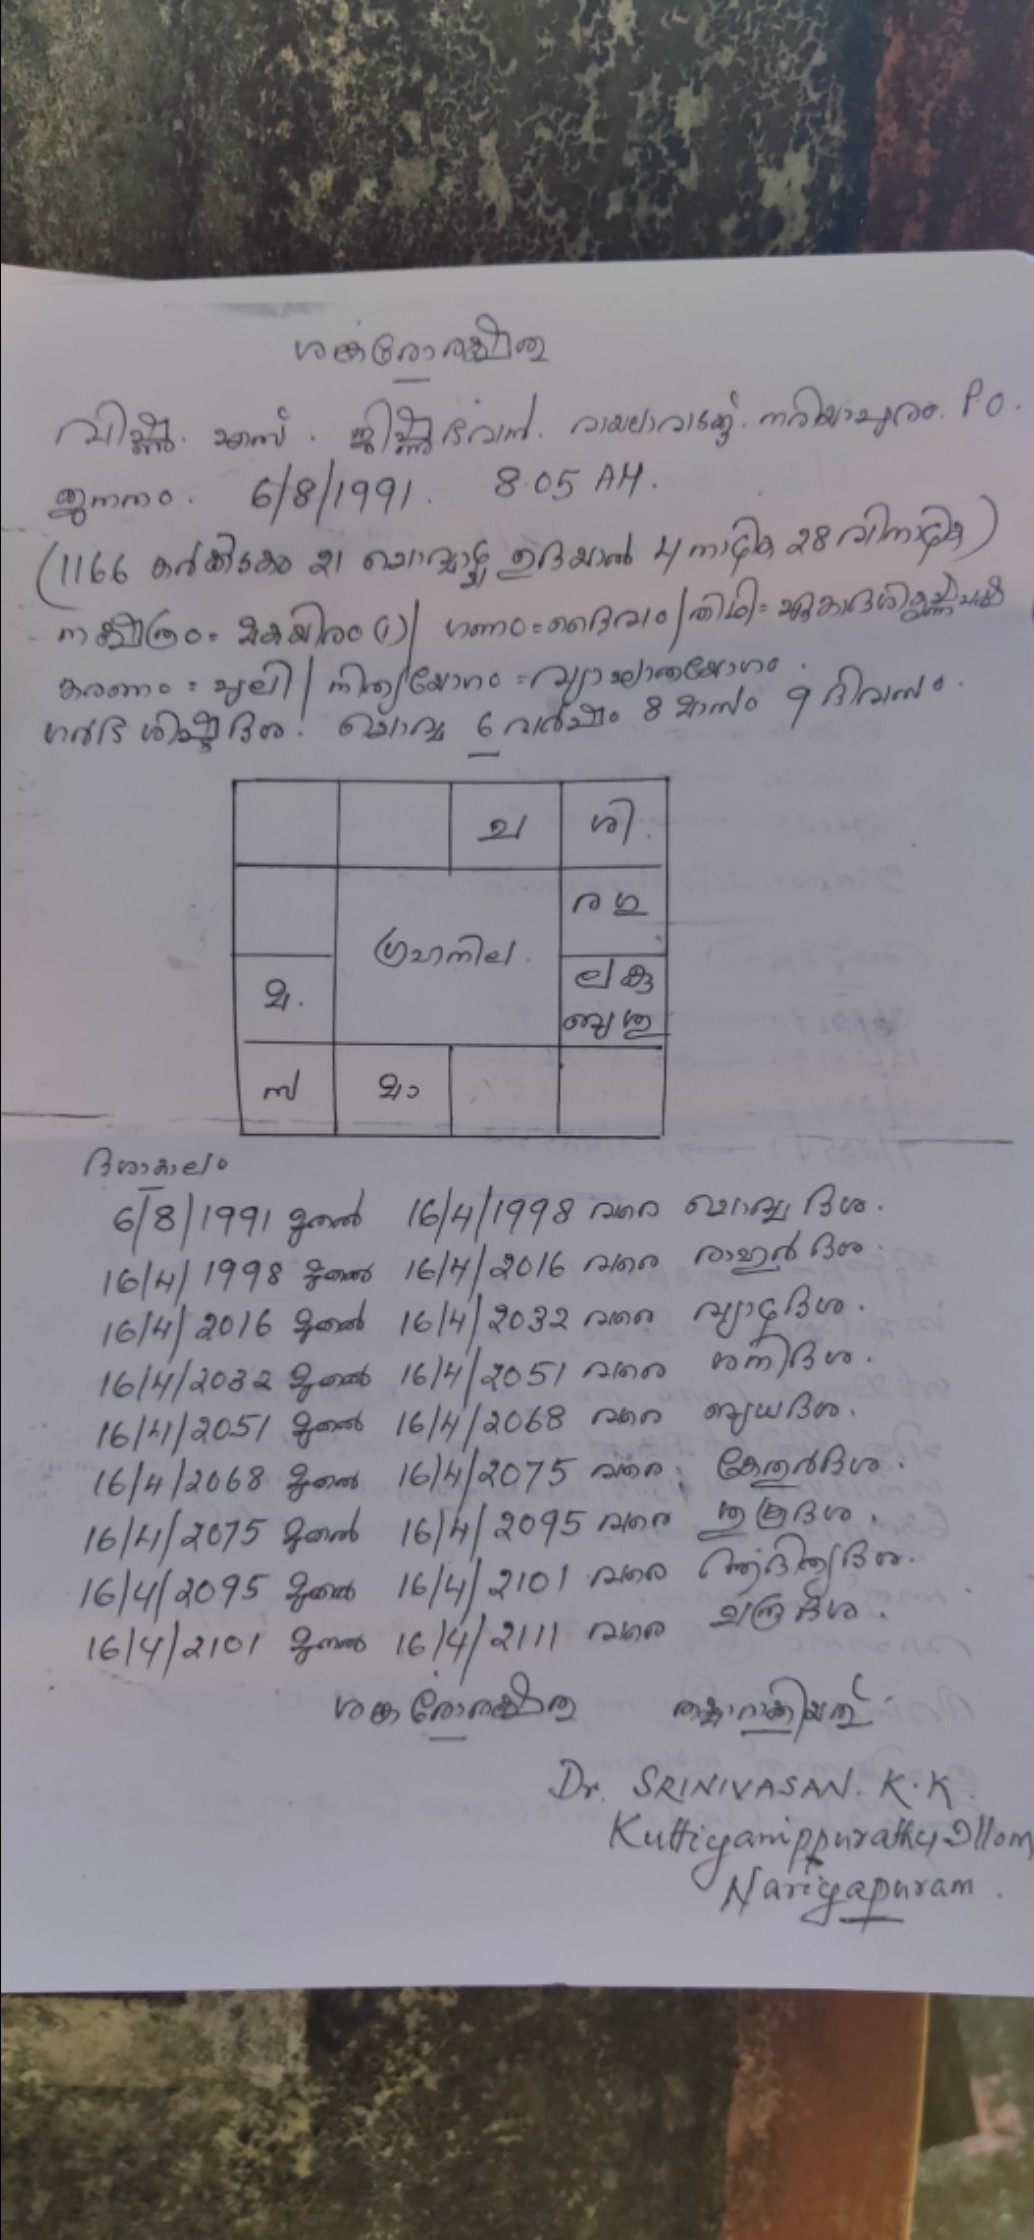 ശങ്കരോരക്ഷതു
വിഷ്ണു. എസ്. ജിഷ്ണുഭവൻ. നരിയാപുരം. P.O.
ജനനം. 6/8/1991. 8.05 AM.
(1166 കർക്കിടകം 21 ചൊവ്വാഴ്ച ഉദയാൽ 4 നാഴിക 28 വിനാഴിക)
നക്ഷത്രം = മകയിരം (1) | ഗണം = ദൈവം | തിഥി = ഏകാദശി കൃഷ്ണപക്ഷ
കരണം = പുലി | നിത്യയോഗം = വ്യാഘാതയോഗം.
ഗർഭശിഷ്ടദശ. ചൊവ്വ 6 വർഷം 8 മാസം 9 ദിവസം.
ച ശി.
ര ഗു
ഗ്രഹനില.
മ. ല കു
ബു ശു
സ മാ
ദശാകാലം
6/8/1991 മുതൽ 16/4/1998 വരെ ചൊവ്വ ദശ.
16/4/1998 മുതൽ 16/4/2016 വരെ രാഹുർ ദശ.
16/4/2016 മുതൽ 16/4/2032 വരെ വ്യാഴദശ.
16/4/2032 മുതൽ 16/4/2051 വരെ ശനിദശ.
16/4/2051 മുതൽ 16/4/2068 വരെ ബുധദശ.
16/4/2068 മുതൽ 16/4/2075 വരെ കേതുർദശ.
16/4/2075 മുതൽ 16/4/2095 വരെ ശുക്രദശ.
16/4/2095 മുതൽ 16/4/2101 വരെ ആദിത്യദശ.
16/4/2101 മുതൽ 16/4/2111 വരെ ചന്ദ്രദശ.
ശങ്കരോരക്ഷതു തയ്യാറാക്കിയത്
Dr. SRINIVASAN. K.K.
Kuttiyanippurathy Illom
Nariyapuram.